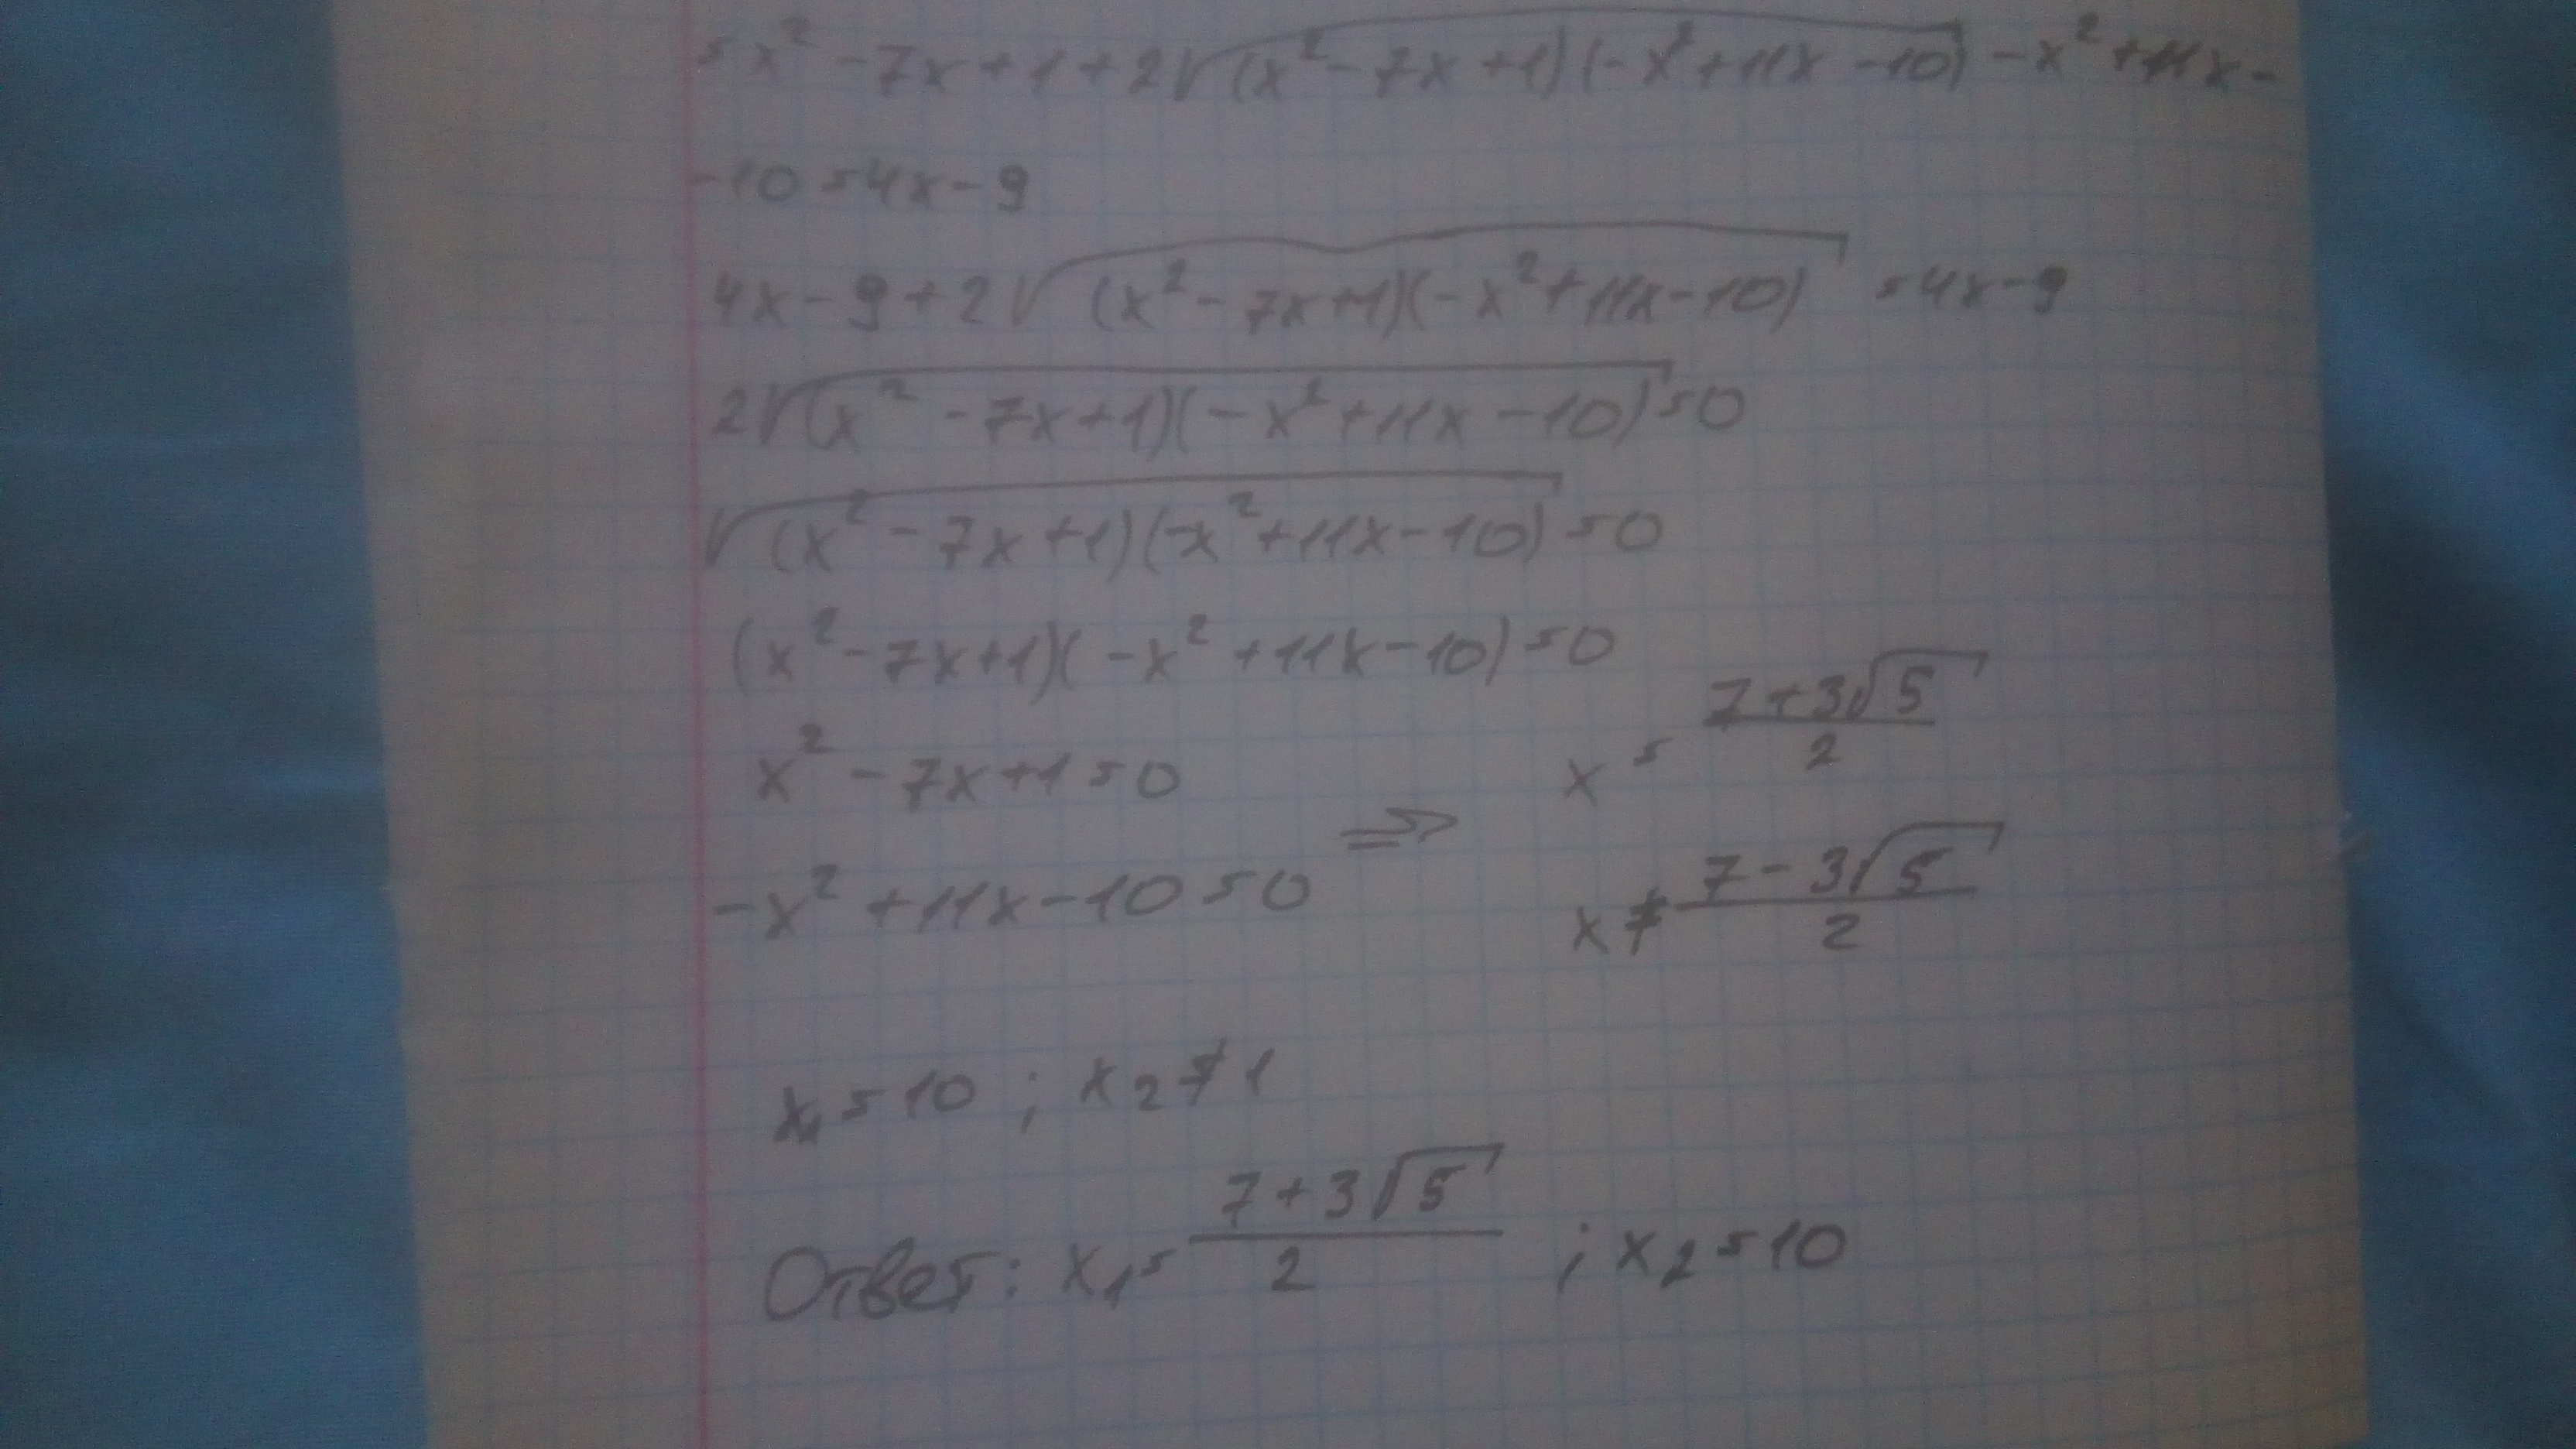 =x² -7x+1+2√(x²-7x+1)(-x²+11x-10) -x²+11x-
-10=4x-9
4x-9+2√(x²-7x+1)(-x²+11x-10) =4x-9
2√(x²-7x+1)(-x²+11x-10)=0
√(x²-7x+1)(-x²+11x-10)=0
(x²-7x+1)(-x²+11x-10)=0
x²-7x+1=0
x = (7+3√5)/2
-x²+11x-10=0 ⇒
x ≠ (7-3√5)/2
x₁=10 ; x₂≠1
Ответ: x₁= (7+3√5)/2 ; x₂=10